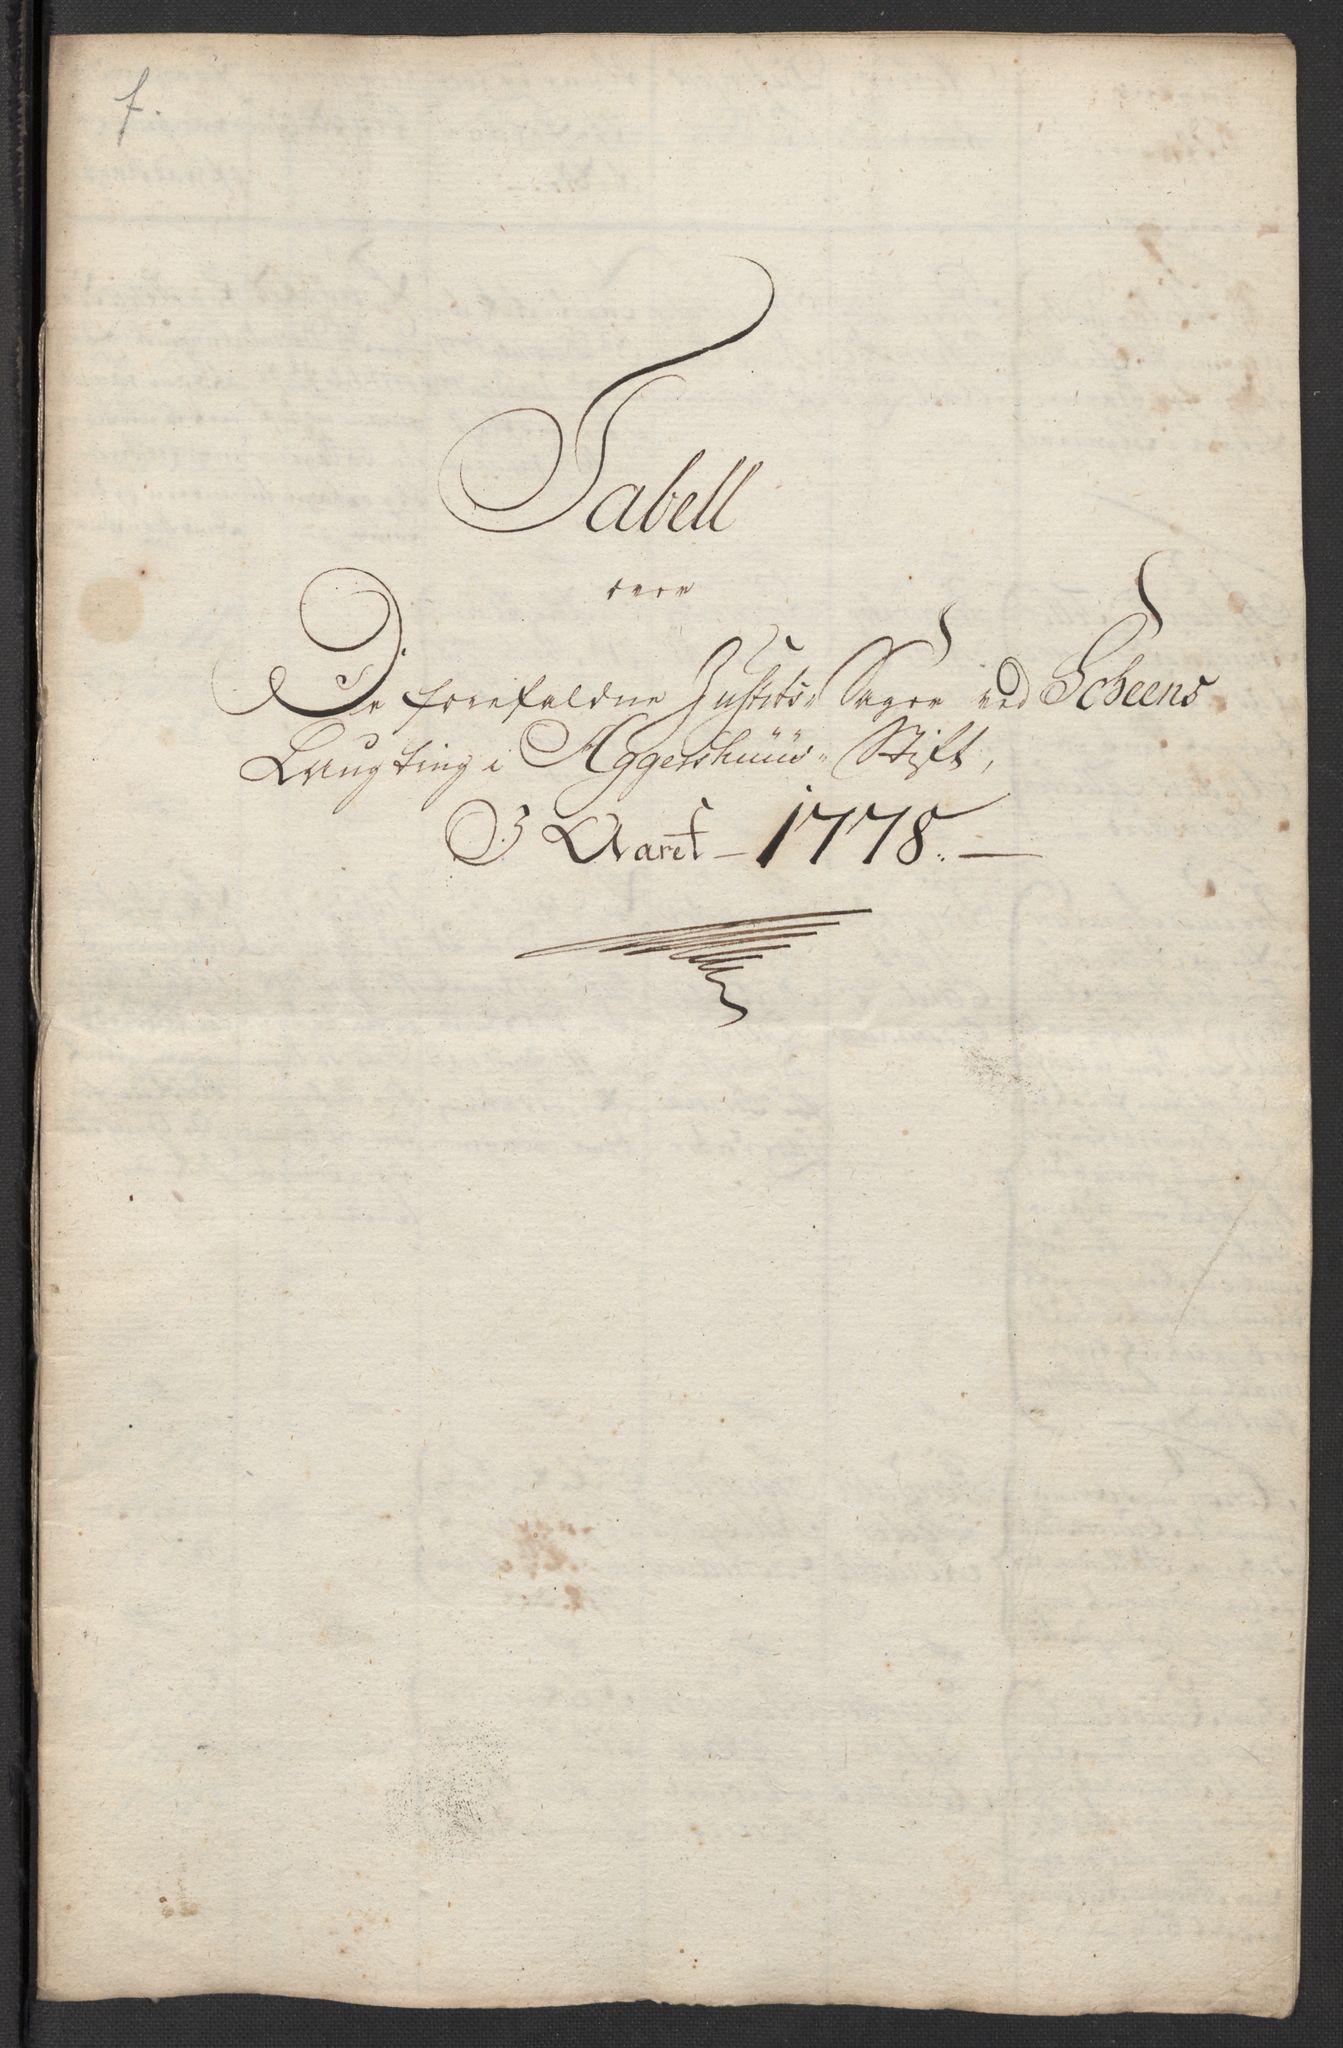 7.
Tabell
over
De forefaldne Justits Sager ved Scheens
Laugting i Aggershuus Stift,
I Aaret 1778.